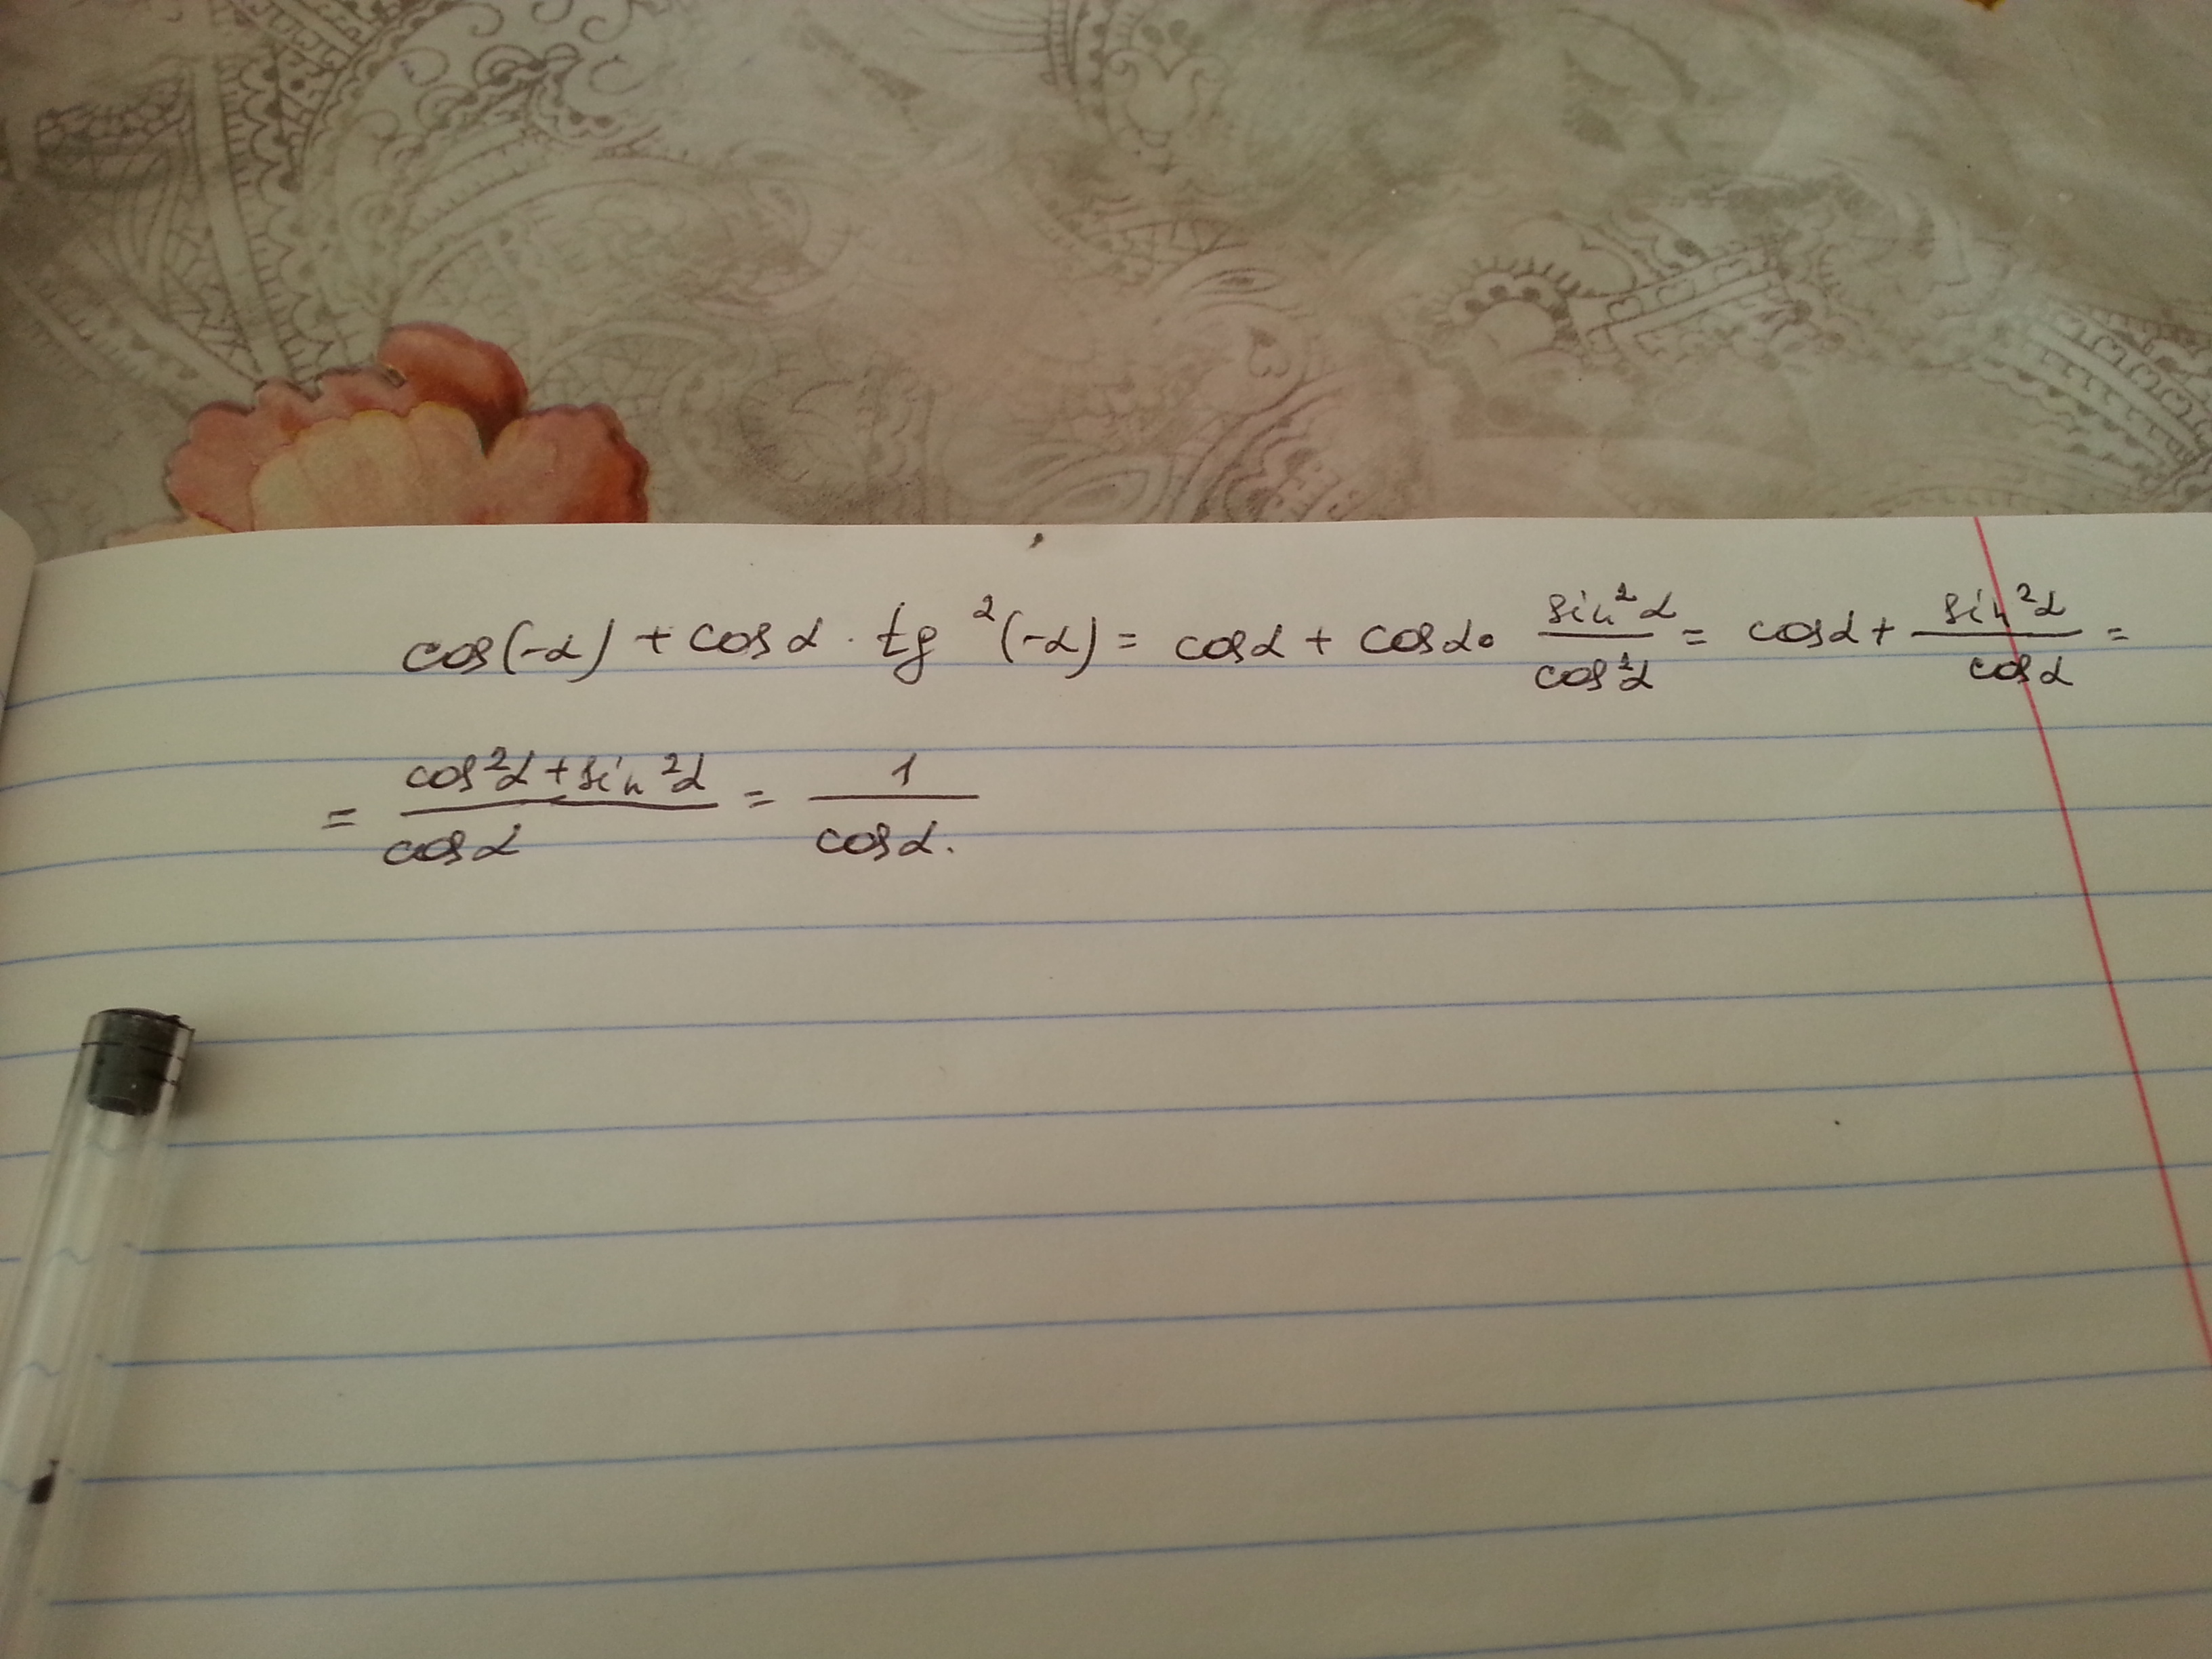 cos(-α) + cos α · tg ²(-α) = cos α + cos α · sin²α/cos²α = cos α + sin²α/cos α =
= cos²α + sin²α/cos α = 1/cos α.